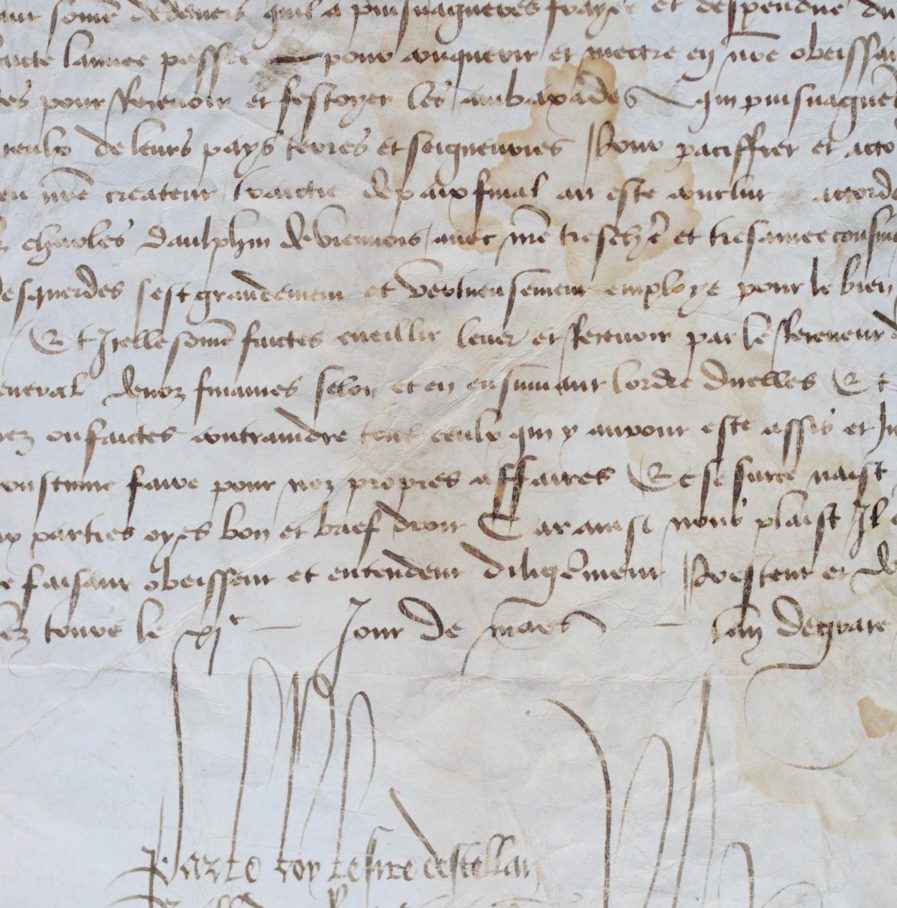 somme de deniers quil a puis nagueres frayez et despendue du
lannee passee pour conquerir et mectre en nre obeissan
pour Recevoir et festoyer les ambaxades qui puis nagueres
de leurs pays terres et seigneuries Pour paciffier et acco
nre createur traictie de paix final ait este conclut accorde
charles daulphin de viennois avec nre treschere et tresamee cousine
esquerdes sest grandement et vertueusement employe pour le bien
Et Icelle somme faictes cueillir lever et Recevoir par le Receveur
general de noz finances selon et en ensuivant lordre dicelles Et
ou faictes contraindre tous ceulx qui y auront este assis et Im
acoustume faire pour noz propres affaires Et se sur ce naist
parties oyes bon et brief droit Car ainsi nous plaist Il
faisant obeissent et entendent diligemment Prestent et
tours le xi e Jour de mars Lan de grace
Par le roy le sire